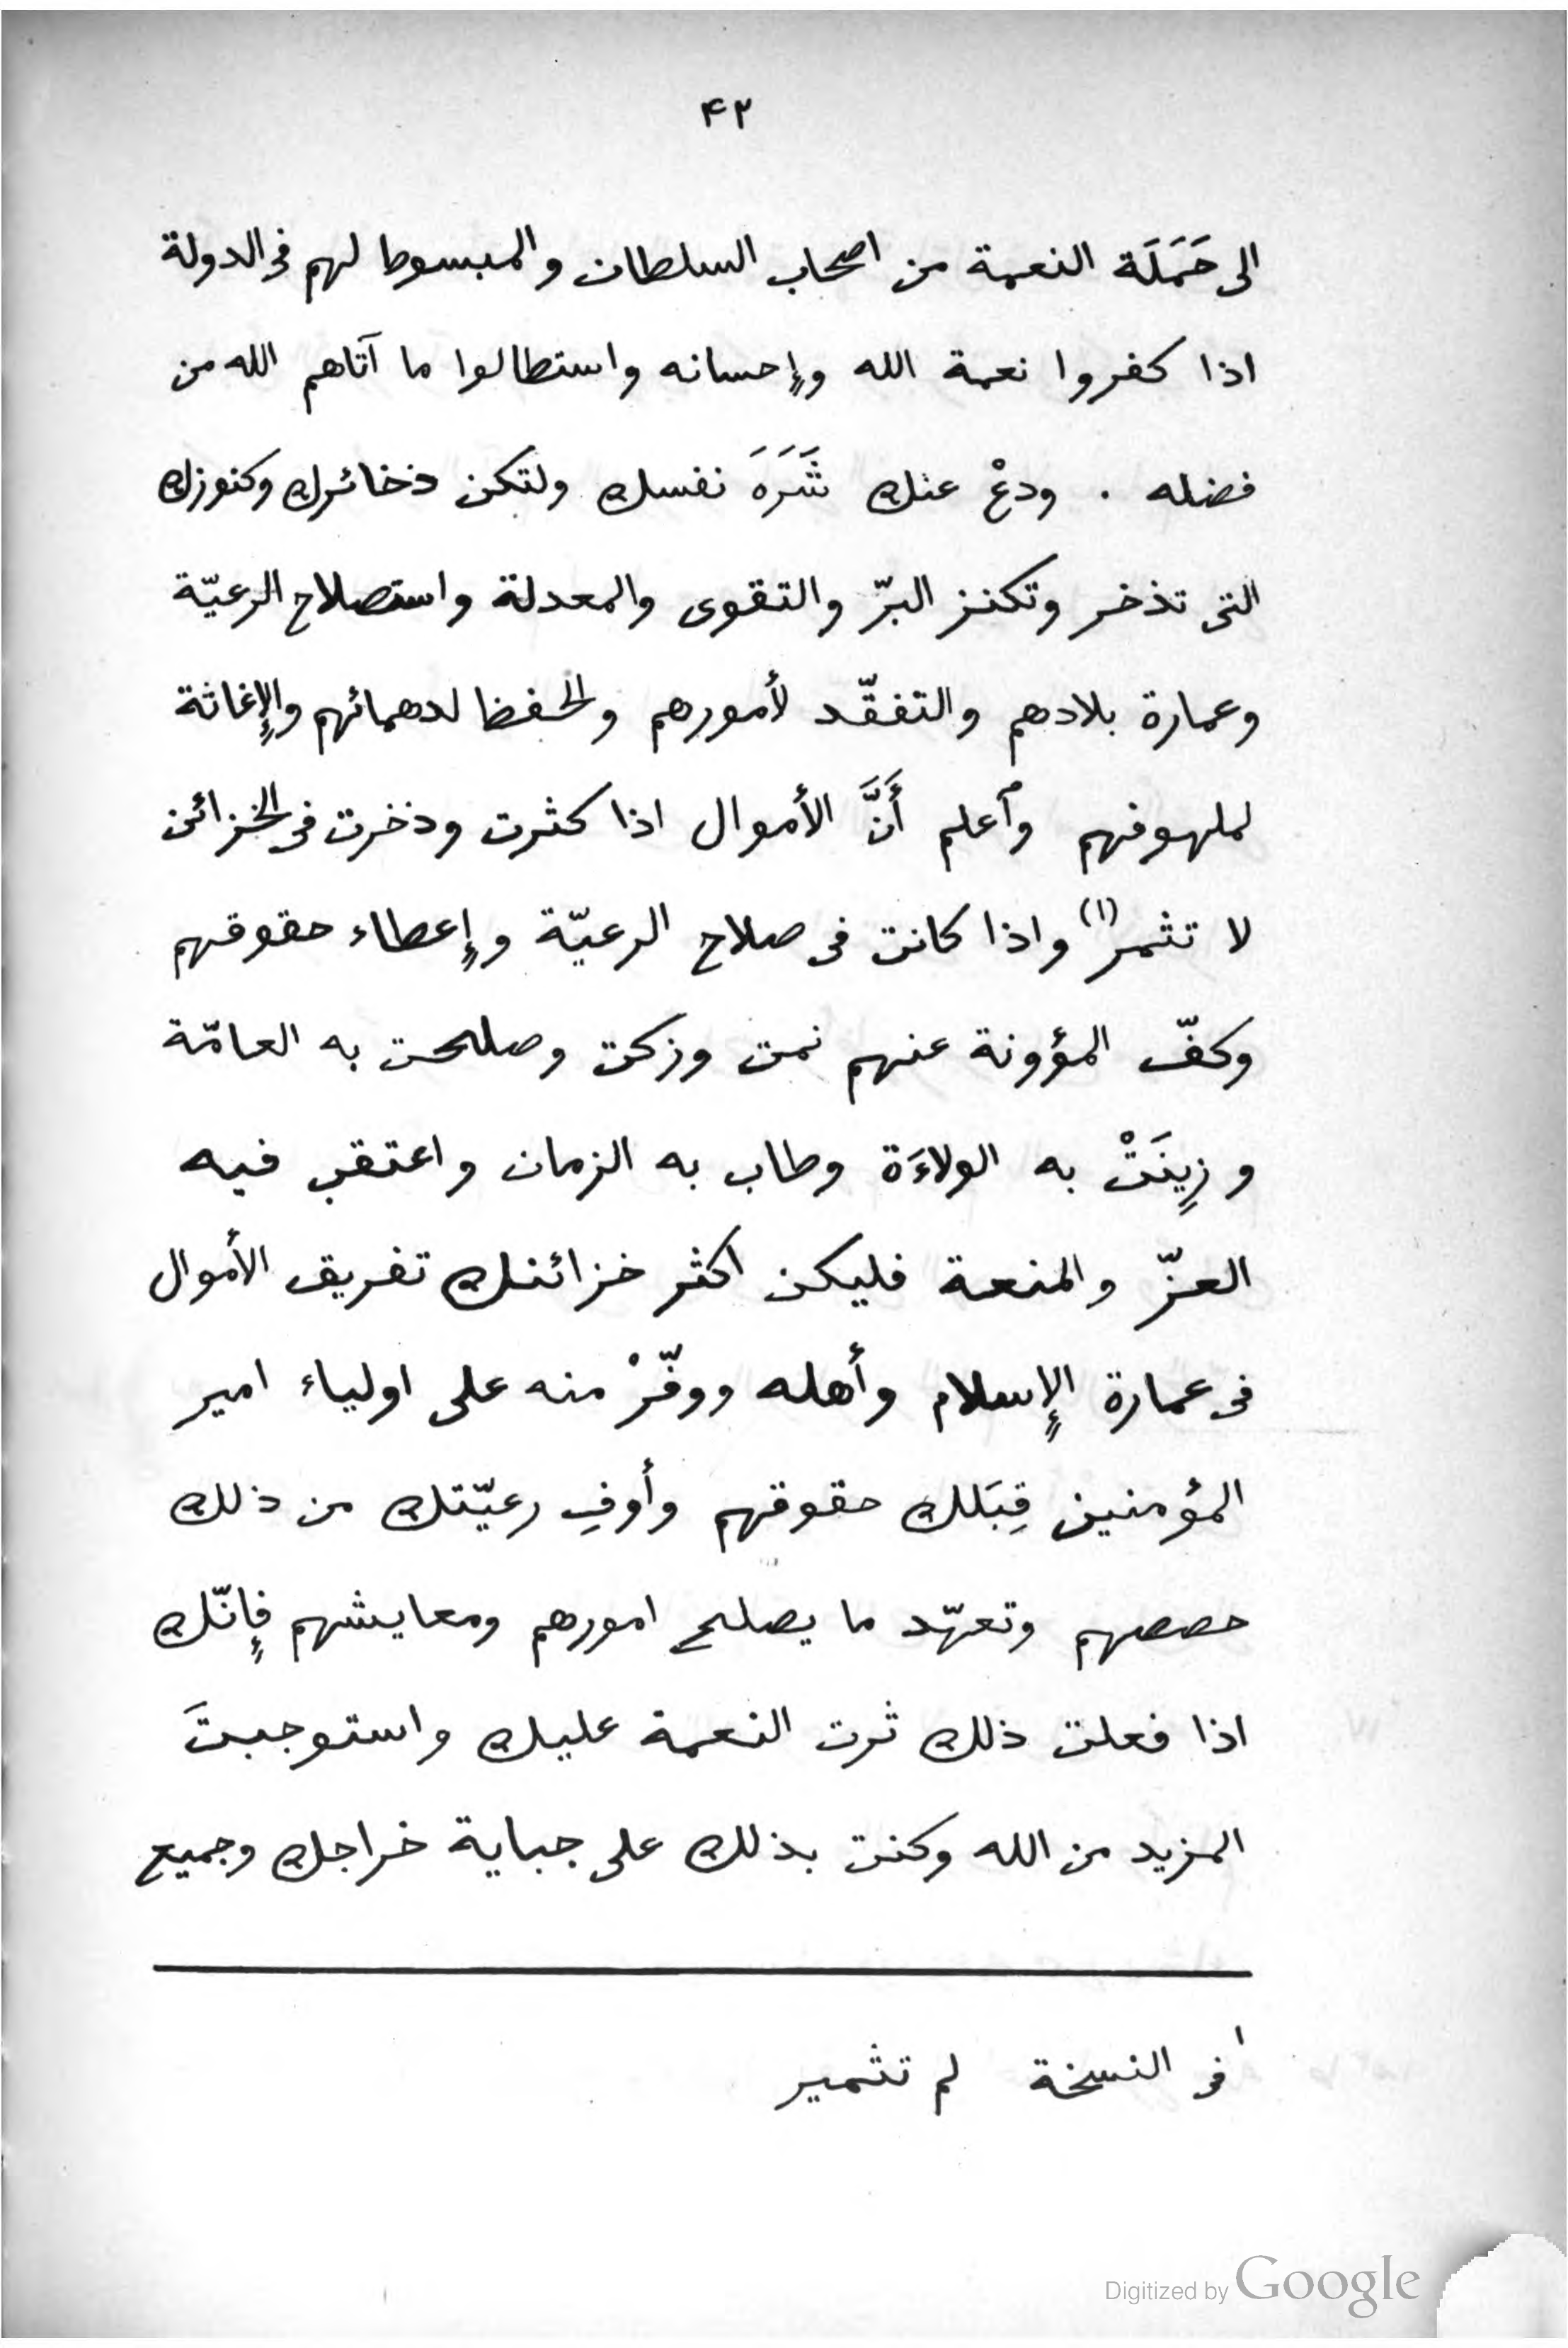 ۴۲
الى حَمَلَة النعمة من اصحاب السلطان والمبسوط لهم فى الدولة
اذا كفروا نعمة الله وإحسانه واستطالوا ما آتاهم الله من
فضله . ودعْ عنك شَرَهَ نفسك ولتكن ذخائرك وكنوزك
التى تذخر وتكنز البرّ والتقوى والمعدلة واستصلاح الرعيّة
وعمارة بلادهم والتفقّد لأمورهم والحفظ لدهمائهم والإغاثة
لملهوفهم وٱعلم أَنَّ الأموال اذا كثرت وذخرت فى الخزائن
لا تثمر(١) واذا كانت فى صلاح الرعيّة وإعطاء حقوقهم
وكفّ المؤونة عنهم نمت وزكت وصلحت به العامّة
وزِينَتْ به الولاءَة وطاب به الزمان واعتقب فيه
العزّ والمنعة فليكن اكثر خزائنك تفريق الأموال
فى عمارة الإسلام وأهله ووفّرْ منه على اولياء امير
المؤمنين قِبَلك حقوقهم وأوفِ رعيّتك من ذلك
حصصهم وتعهّد ما يصلح امورهم ومعايشهم فإنّك
اذا فعلت ذلك ثرت النعمة عليك واستوجبتَ
المزيد من الله وكنت بذلك على جباية خراجك وجميع
١ فى النسخة لم تثمير
Digitized by Google